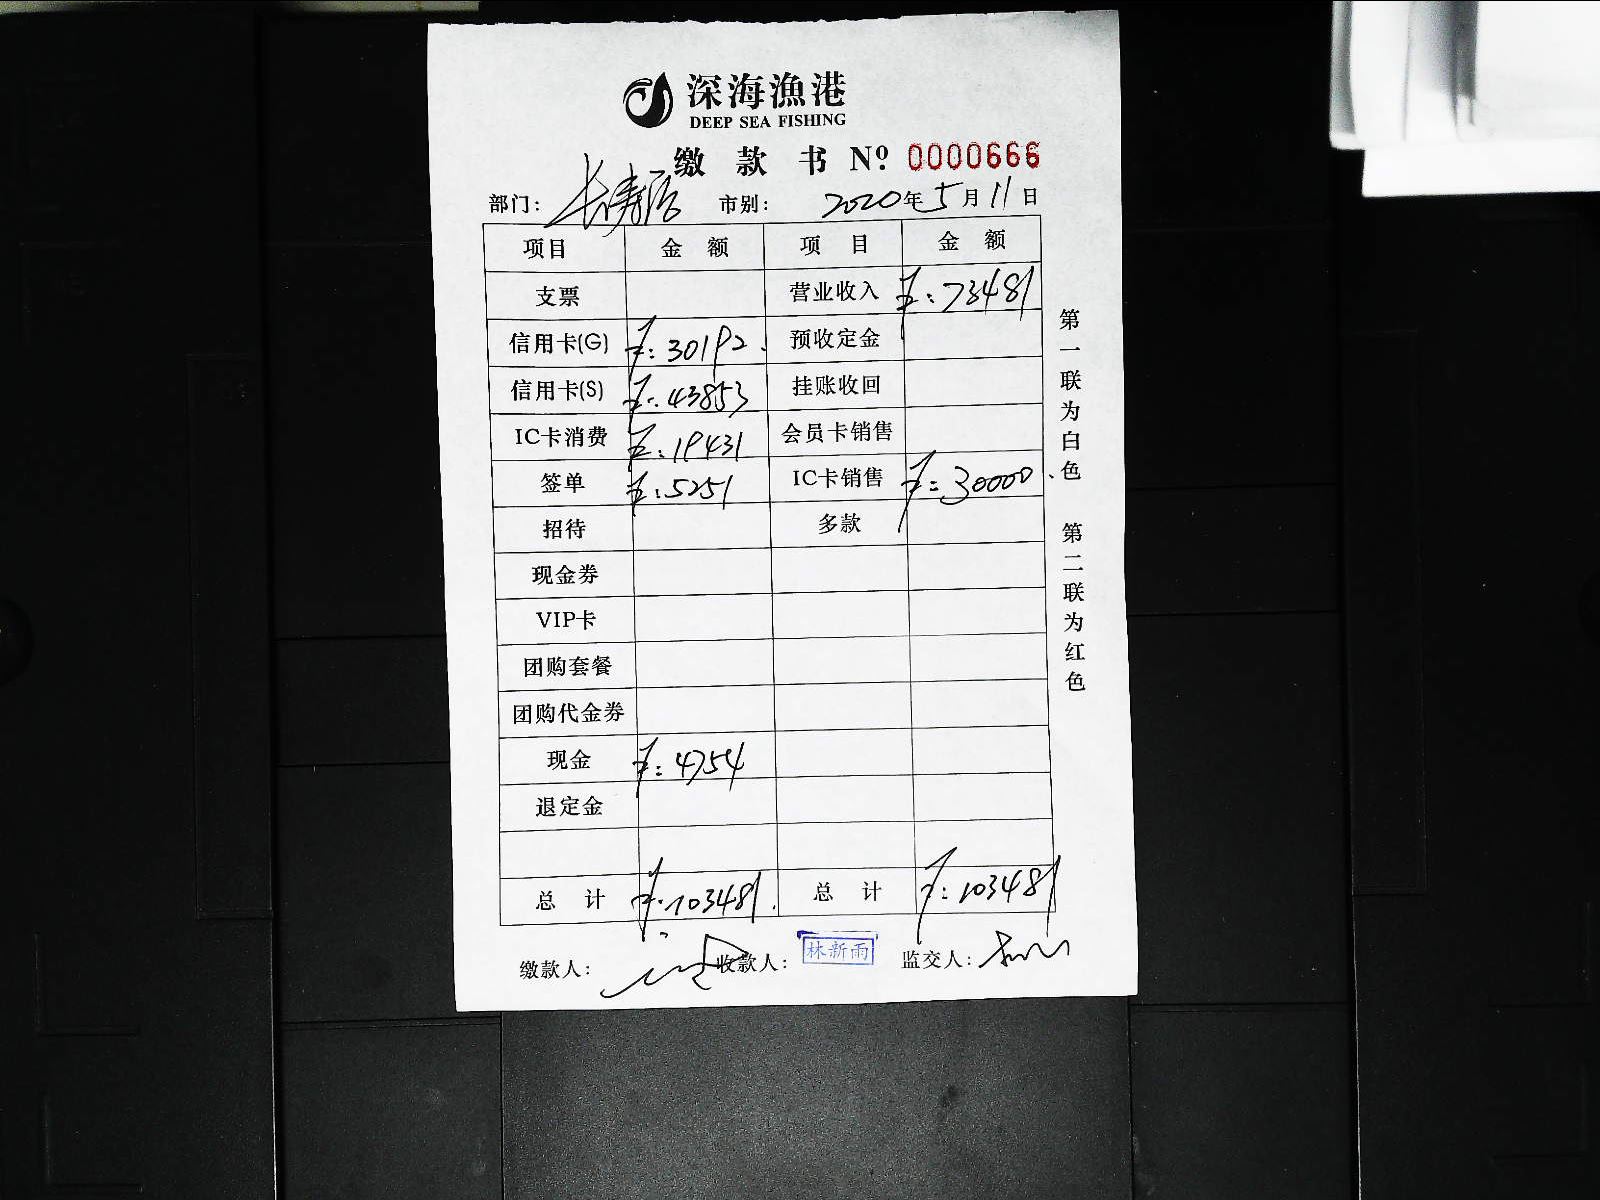 深海渔港
DEEP SEA FISHING
缴款书 Nº 0000666
部门: 长寿 市别: 2020年5月11日
项目 金额 项目 金额
支票 营业收入 ¥:73481
信用卡(G) ¥:30192 预收定金
信用卡(S) ¥:43853 挂账收回
IC卡消费 ¥:19431 会员卡销售
签单 ¥:5251 IC卡销售 ¥:30000
招待 多款
现金券
VIP卡
团购套餐
团购代金券
现金 ¥:4754
退定金
总计 ¥:103481 总计 ¥:103481
缴款人: 收款人: 林新雨 监交人:
第一联为白色 第二联为红色